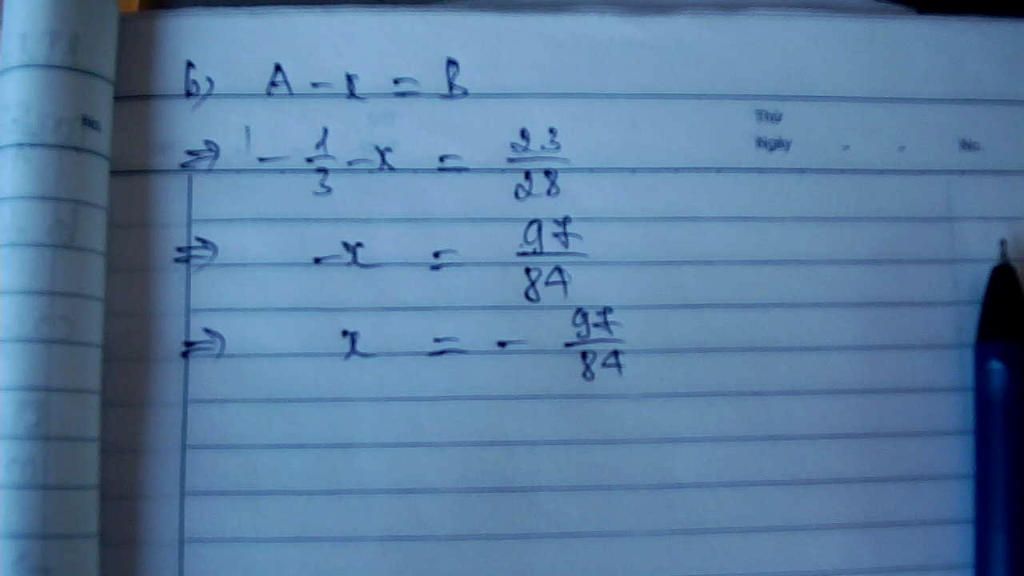 b) A - x = B
⇒ - 1/3 - x = 23/28
⇒ - x = 97/84
⇒ x = - 97/84
Thứ
Ngày No.